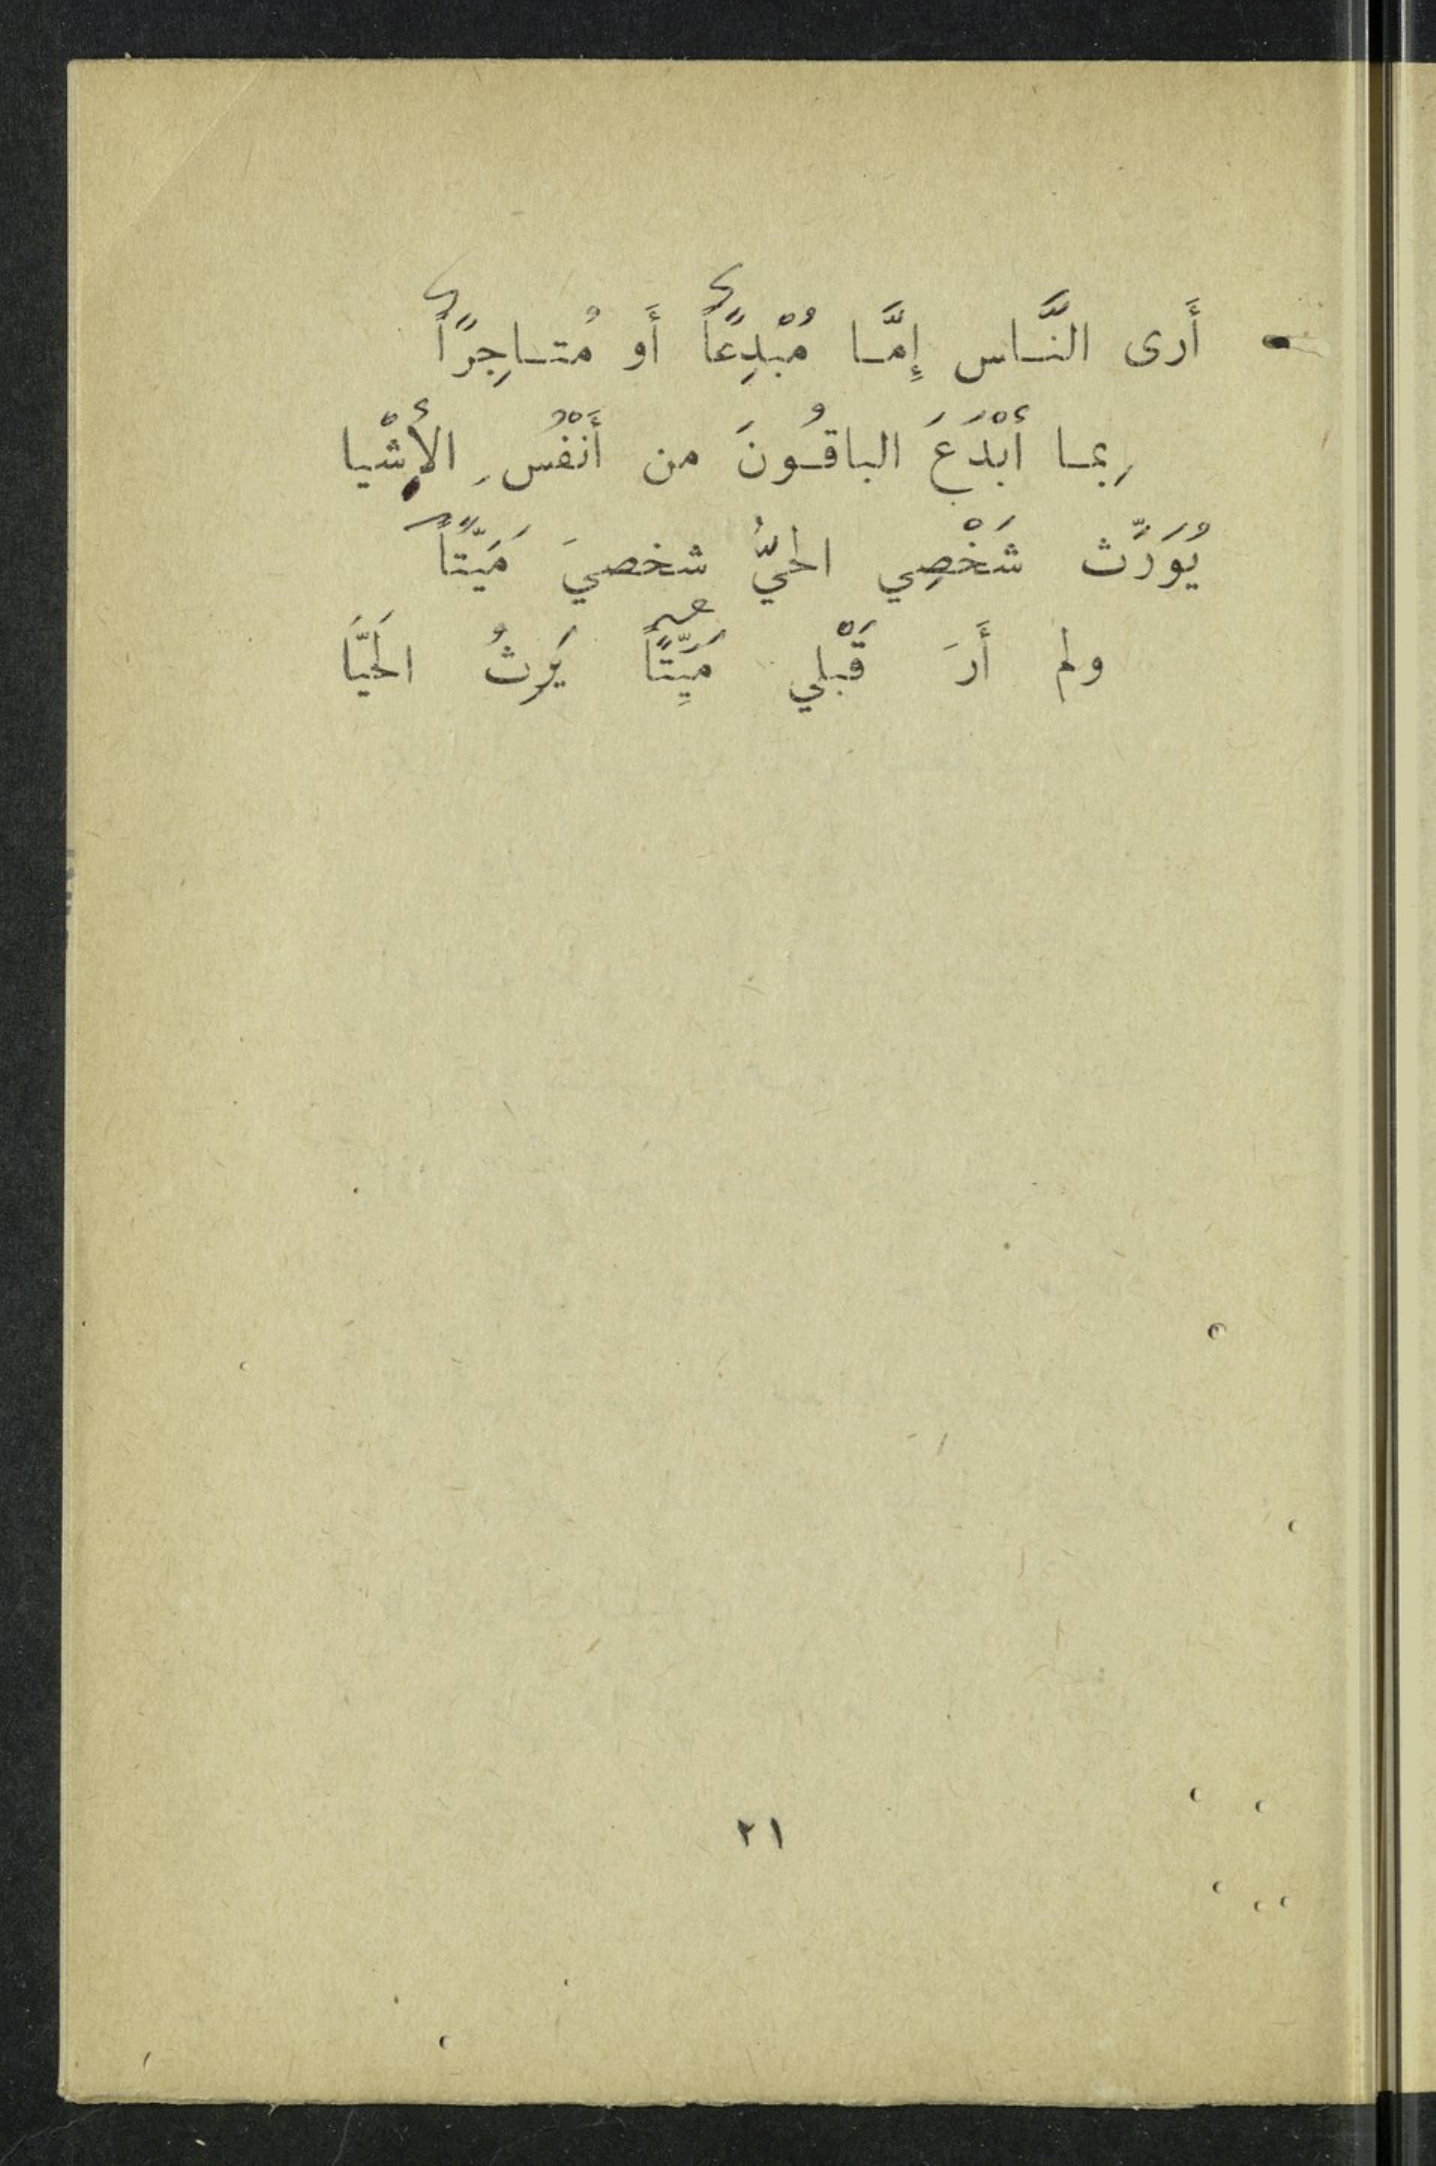 - أَرى النَّاس إِمَّا مُبْدِعًا أَو مُتاجِرًا
بِما أَبْدَعَ الباقُونَ من أَنْفُسِ الأَشْيا
يُوَرِّث شَخْصِي الحيُّ شخصيَ مَيِّتًا
ولم أَرَ قَبْلي مَيِّتًا يَرِثُ الحَيَّا
٢١